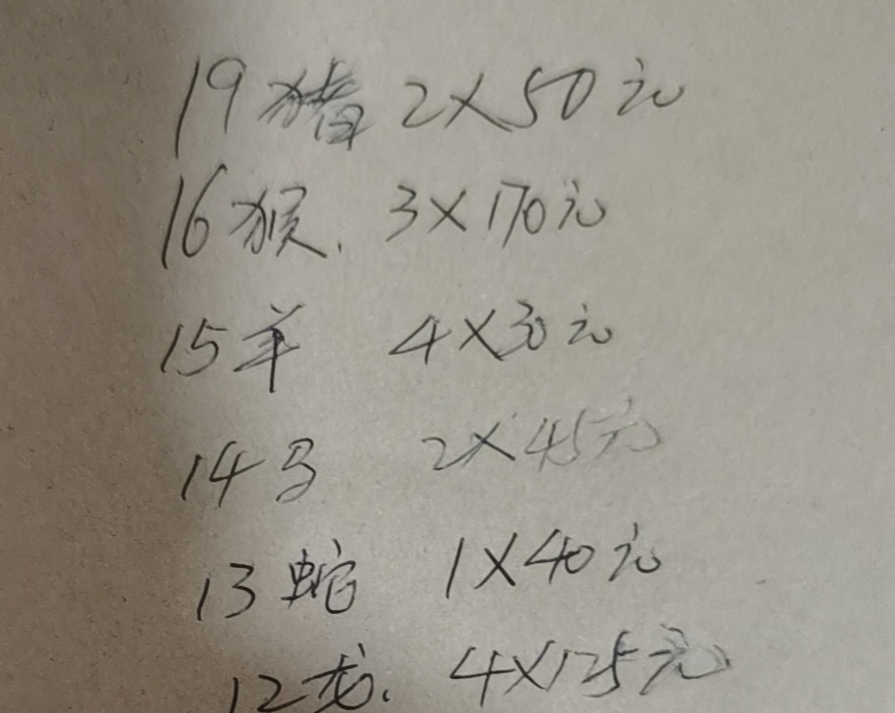 19猪 2×50元
16猴. 3×170元
15羊 4×30元
14马 2×45元
13蛇 1×40元
12龙. 4×125元